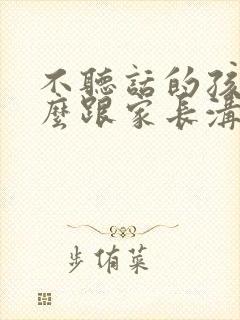 不聽話的孩
麼跟家長溝
步侑菜